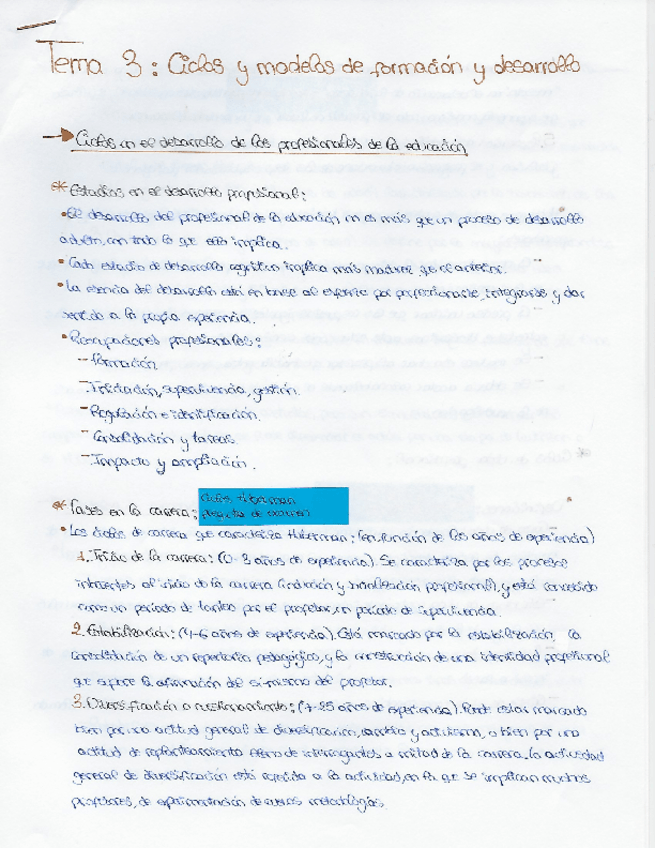 Tema 3: Ciclos y modelos de formación y desarrollo
→ Ciclos en el desarrollo de los profesionales de la educación
* Estadios en el desarrollo profesional:
• El desarrollo del profesional de la educación no es más que un proceso de desarrollo
adulto, con todo lo que ello implica.
• Cada estadio de desarrollo cognitivo implica más madurez que el anterior.
• La esencia del desarrollo está en base al esfuerzo por perfeccionarse, integrarse y dar
sentido a la propia experiencia.
• Preocupaciones profesionales:
- Formación.
- Iniciación, supervivencia, gestión.
- Regulación e identificación.
- Consolidación y tareas.
- Impacto y ampliación.
* Fases en la carrera:
Ciclos Huberman
pregunta de examen
• Los ciclos de carrera que caracteriza Huberman: (en función de los años de experiencia)
1. Inicio de la carrera: (0-3 años de experiencia). Se caracteriza por los procesos
inherentes al inicio de la carrera (inducción y socialización profesional), y está concebido
como un período de tanteo por el profesor, un período de supervivencia.
2. Estabilización: (4-6 años de experiencia). Está marcado por la estabilización, la
consolidación de un repertorio pedagógico, y la construcción de una identidad profesional
que supone la afirmación del sí mismo del profesor.
3. Diversificación o cuestionamiento: (7-25 años de experiencia). Puede estar marcado
bien por una actitud general de diversificación, cambio y activismo, o bien por una
actitud de replanteamiento lleno de interrogantes a mitad de la carrera. La actividad
general de diversificación está referida a la actividad, en la que se implican muchos
profesores, de experimentación de nuevas metodologías.